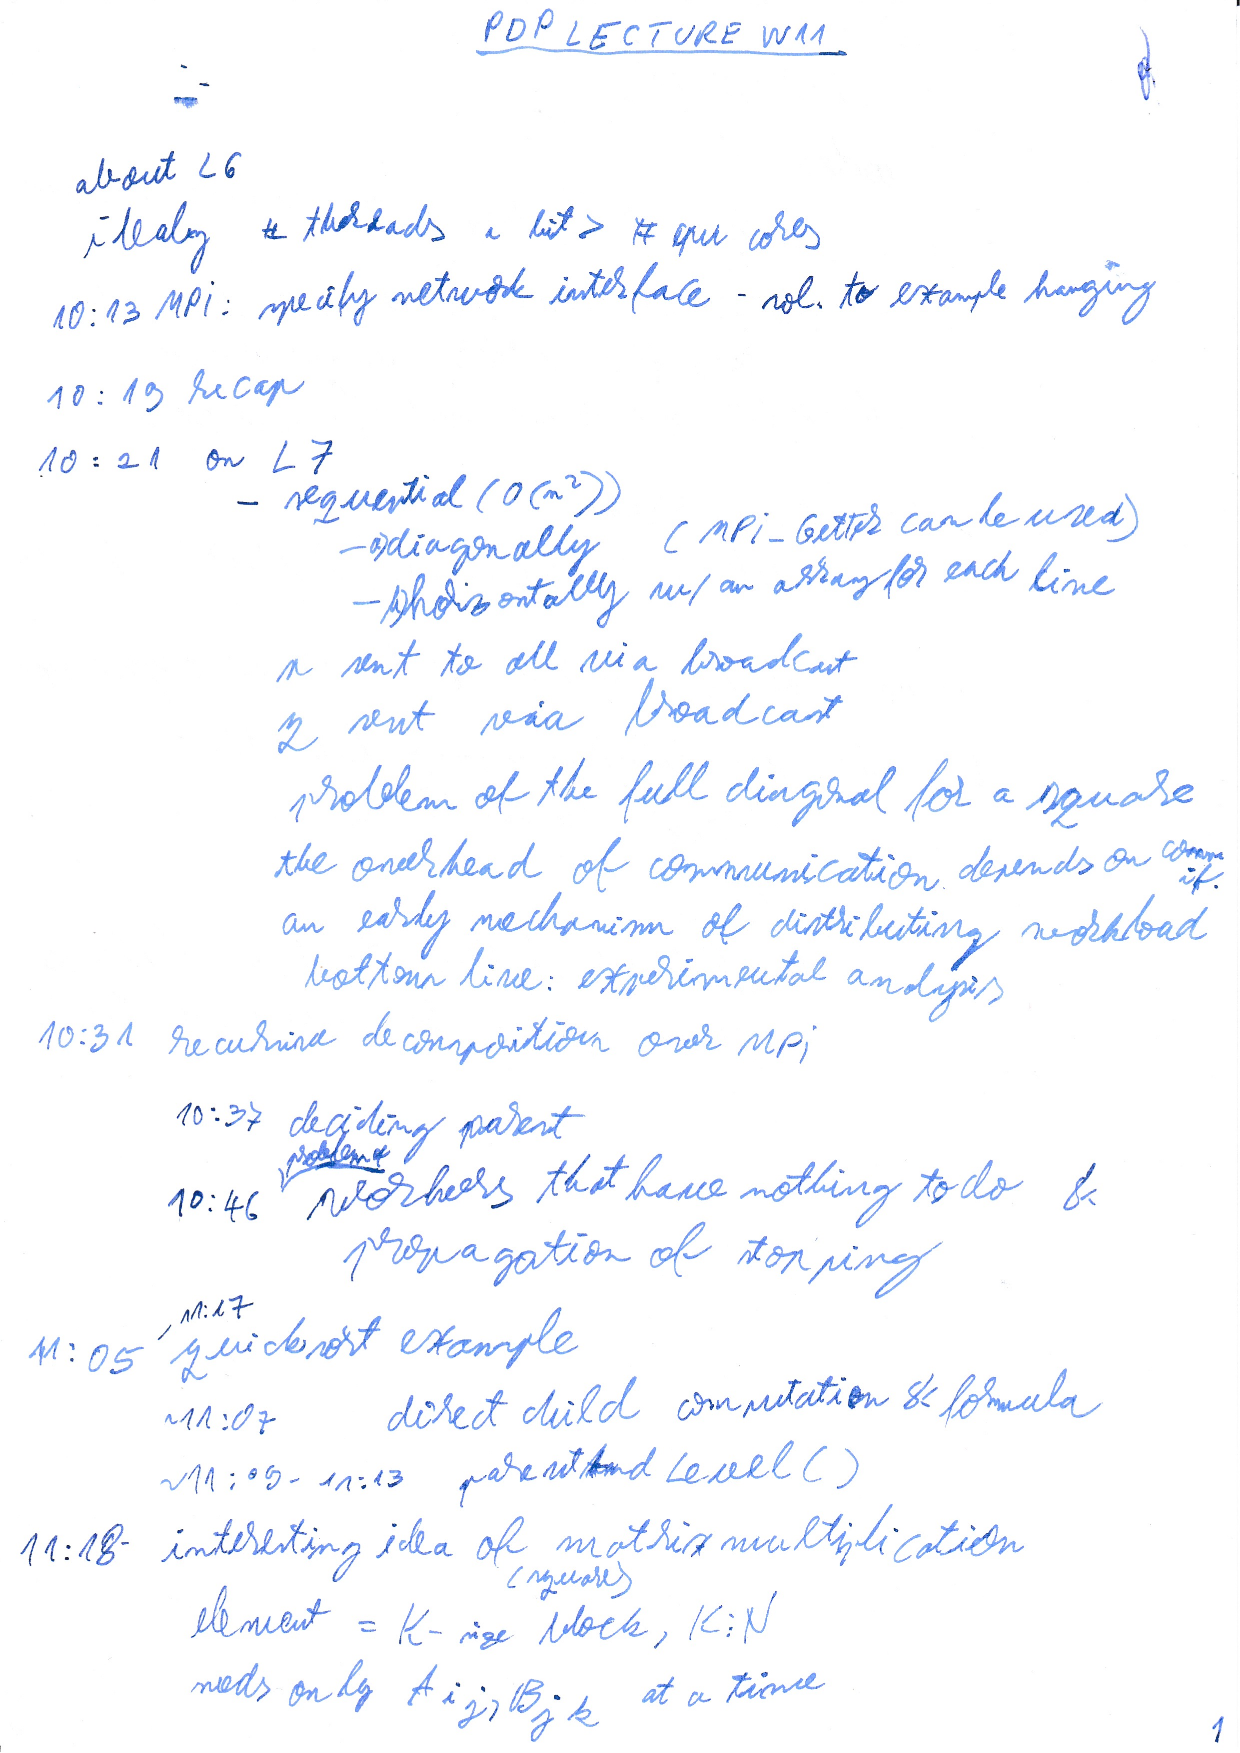 PDP LECTURE W11
about L6
idealy # threads a bit > # cpu cores
10:13 MPi: specify network interface - sol. to example hanging
10:19 recap
10:21 on L7
- sequential (O(n²))
- a) diagonally (MPi_Getter can be used)
- b) horizontally w/ an array for each line
n sent to all via broadcast
q sent via broadcast
problem of the full diagonal for a square
the overhead of communication depends on comm if.
an early mechanism of distributing workload
bottom line: experimental analysis
10:31 recursive decomposition over MPi
10:37 deciding parent
problem of
10:46 workers that have nothing to do &
propagation of stopping
11:17
11:05 quicksort example
~11:07 direct child computation & formula
~11:09-11:13 parentAndLevel()
11:18- interesting idea of matrix multiplication
(square)
element = K-size block, K⋮N
needs only Aij, Bjk at a time
1